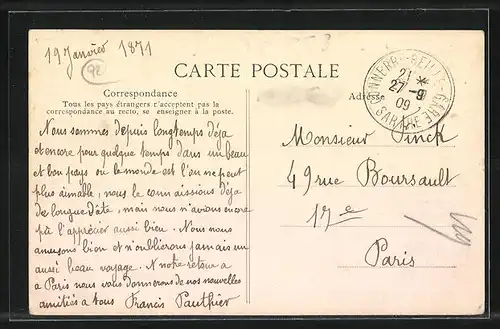 19 Janvier 1871
92
3
CARTE POSTALE
Correspondance
Tous les pays étrangers n'acceptent pas la
correspondance au recto, se renseigner à la poste.
Adresse
BEILLÉ-GARE
21 *
27 - 9
09
SARTHE
Nous sommes depuis longtemps déjà
et encore pour quelque temps dans un beau
et bon pays ou le monde est l'on ne peut
plus aimable, nous le connaissions déja
de longue date, mais nous n'avions encore
pu l'apprécier aussi bien. Nous nous
amusons bien et n'oublierons jamais un
aussi beau voyage. A notre retour a
a Paris nous vous donnerons de nos nouvelles
amitiés a tous Francis Pauthier
Monsieur Pinck
49 rue Boursault
17e
Paris